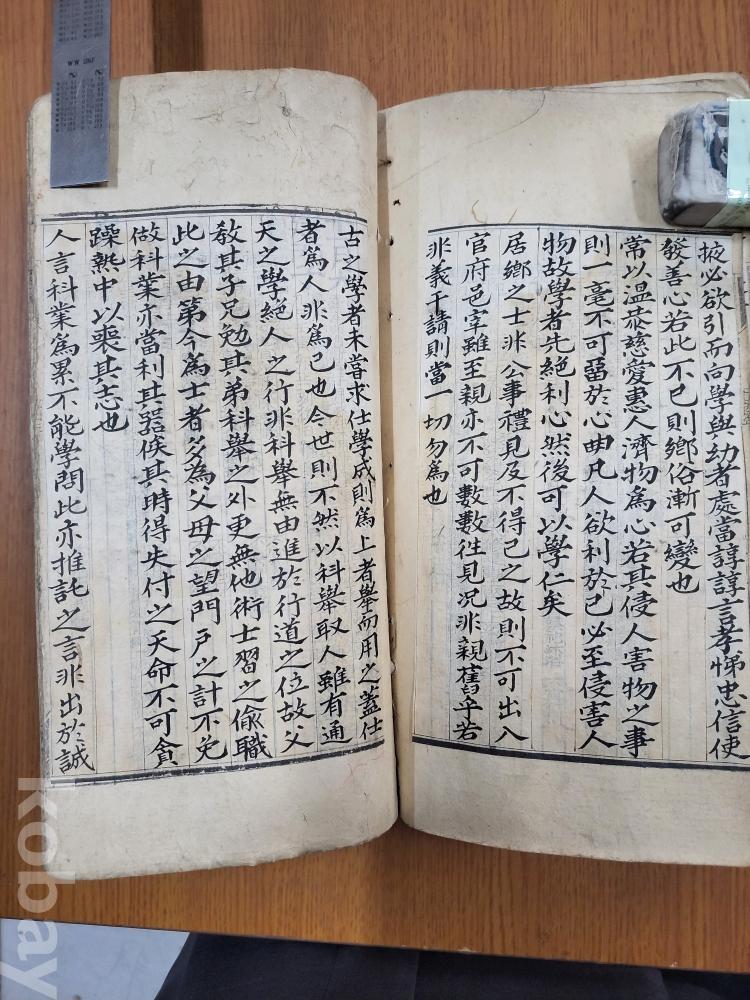 掖必欲引而向學與幼者處當諄諄言孝悌忠信使
發善心若此不已則鄉俗漸可變也
常以溫恭慈愛惠人濟物爲心若其侵人害物之事
則一毫不可留於心曲凡人欲利於己必至侵害人
物故學者先絕利心然後可以學仁矣
居鄉之士非公事禮見及不得已之故則不可出入
官府邑宰雖至親亦不可數數徃見况非親舊乎若
非義干請則當一切勿爲也
古之學者未嘗求仕學成則爲上者舉而用之蓋仕
者爲人非爲己也今世則不然以科舉取人雖有通
天之學絕人之行非科舉無由進於行道之位故父
敎其子兄勉其弟科舉之外更無他術士習之偸職
此之由第今爲士者多爲父母之望門戶之計不免
做科業亦當利其器俟其時得失付之天命不可貪
躁熱中以喪其志也
人言科業爲累不能學問此亦推託之言非出於誠
kobay